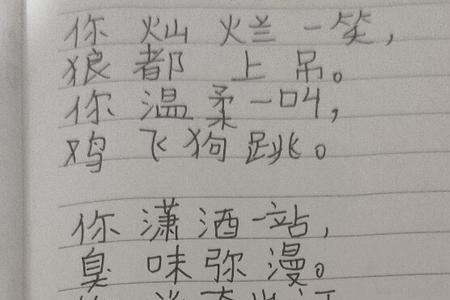 你灿烂一笑，
狼都上吊。
你温柔一叫，
鸡飞狗跳。
你潇洒一站，
臭味弥漫。